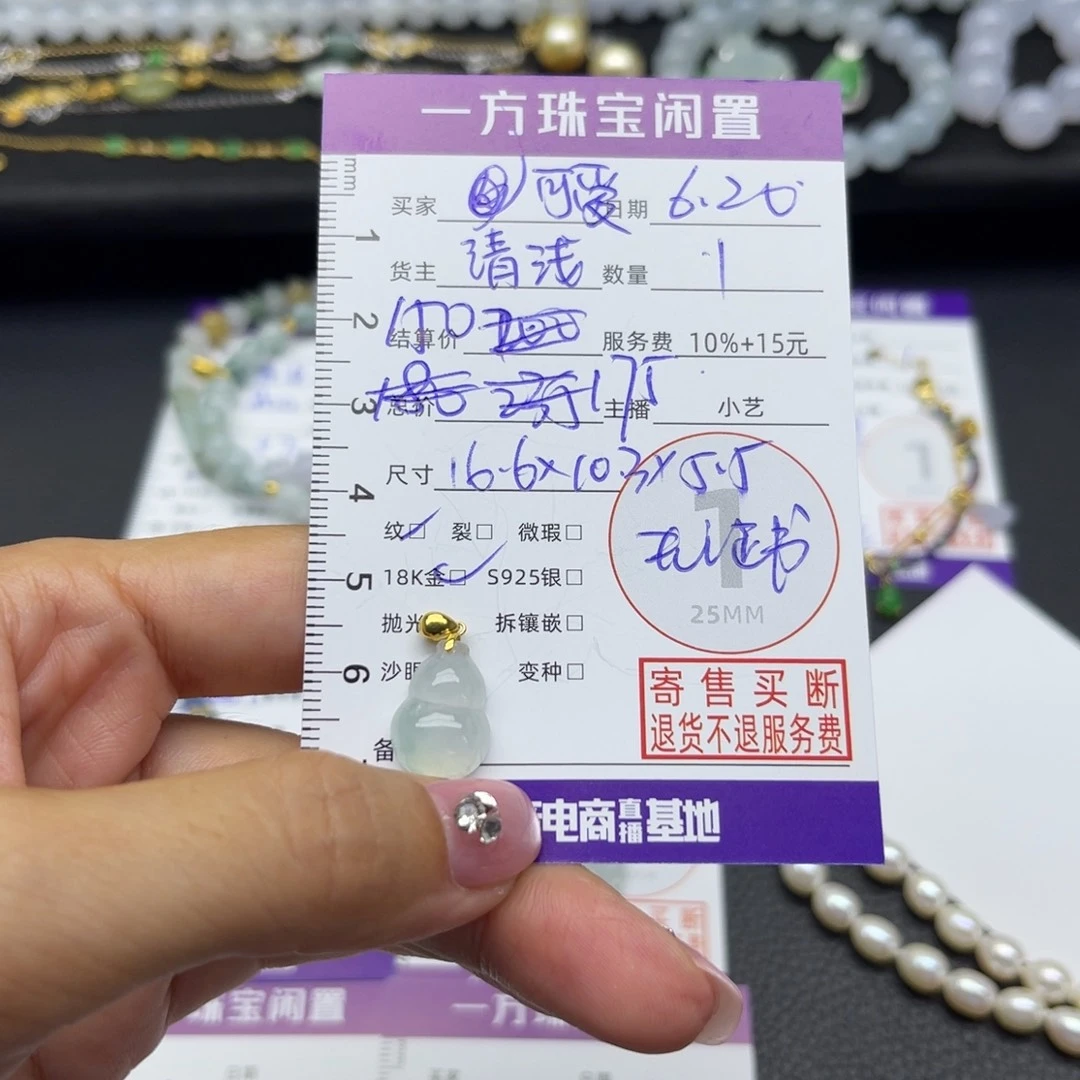 一方珠宝闲置
买家 可爱 日期 6.20
货主 清浅 数量 1
结算价 服务费 10%+15元
总价 175 主播 小艺
尺寸 16.6×10.3×5.5
纹 裂 微瑕
无证书
18K金 S925银
抛光 拆镶嵌
25MM
沙眼 变种
寄售买断
退货不退服务费
备
电商直播基地
mm
1
2
3
4
5
6
1
珠宝闲置
一方珠